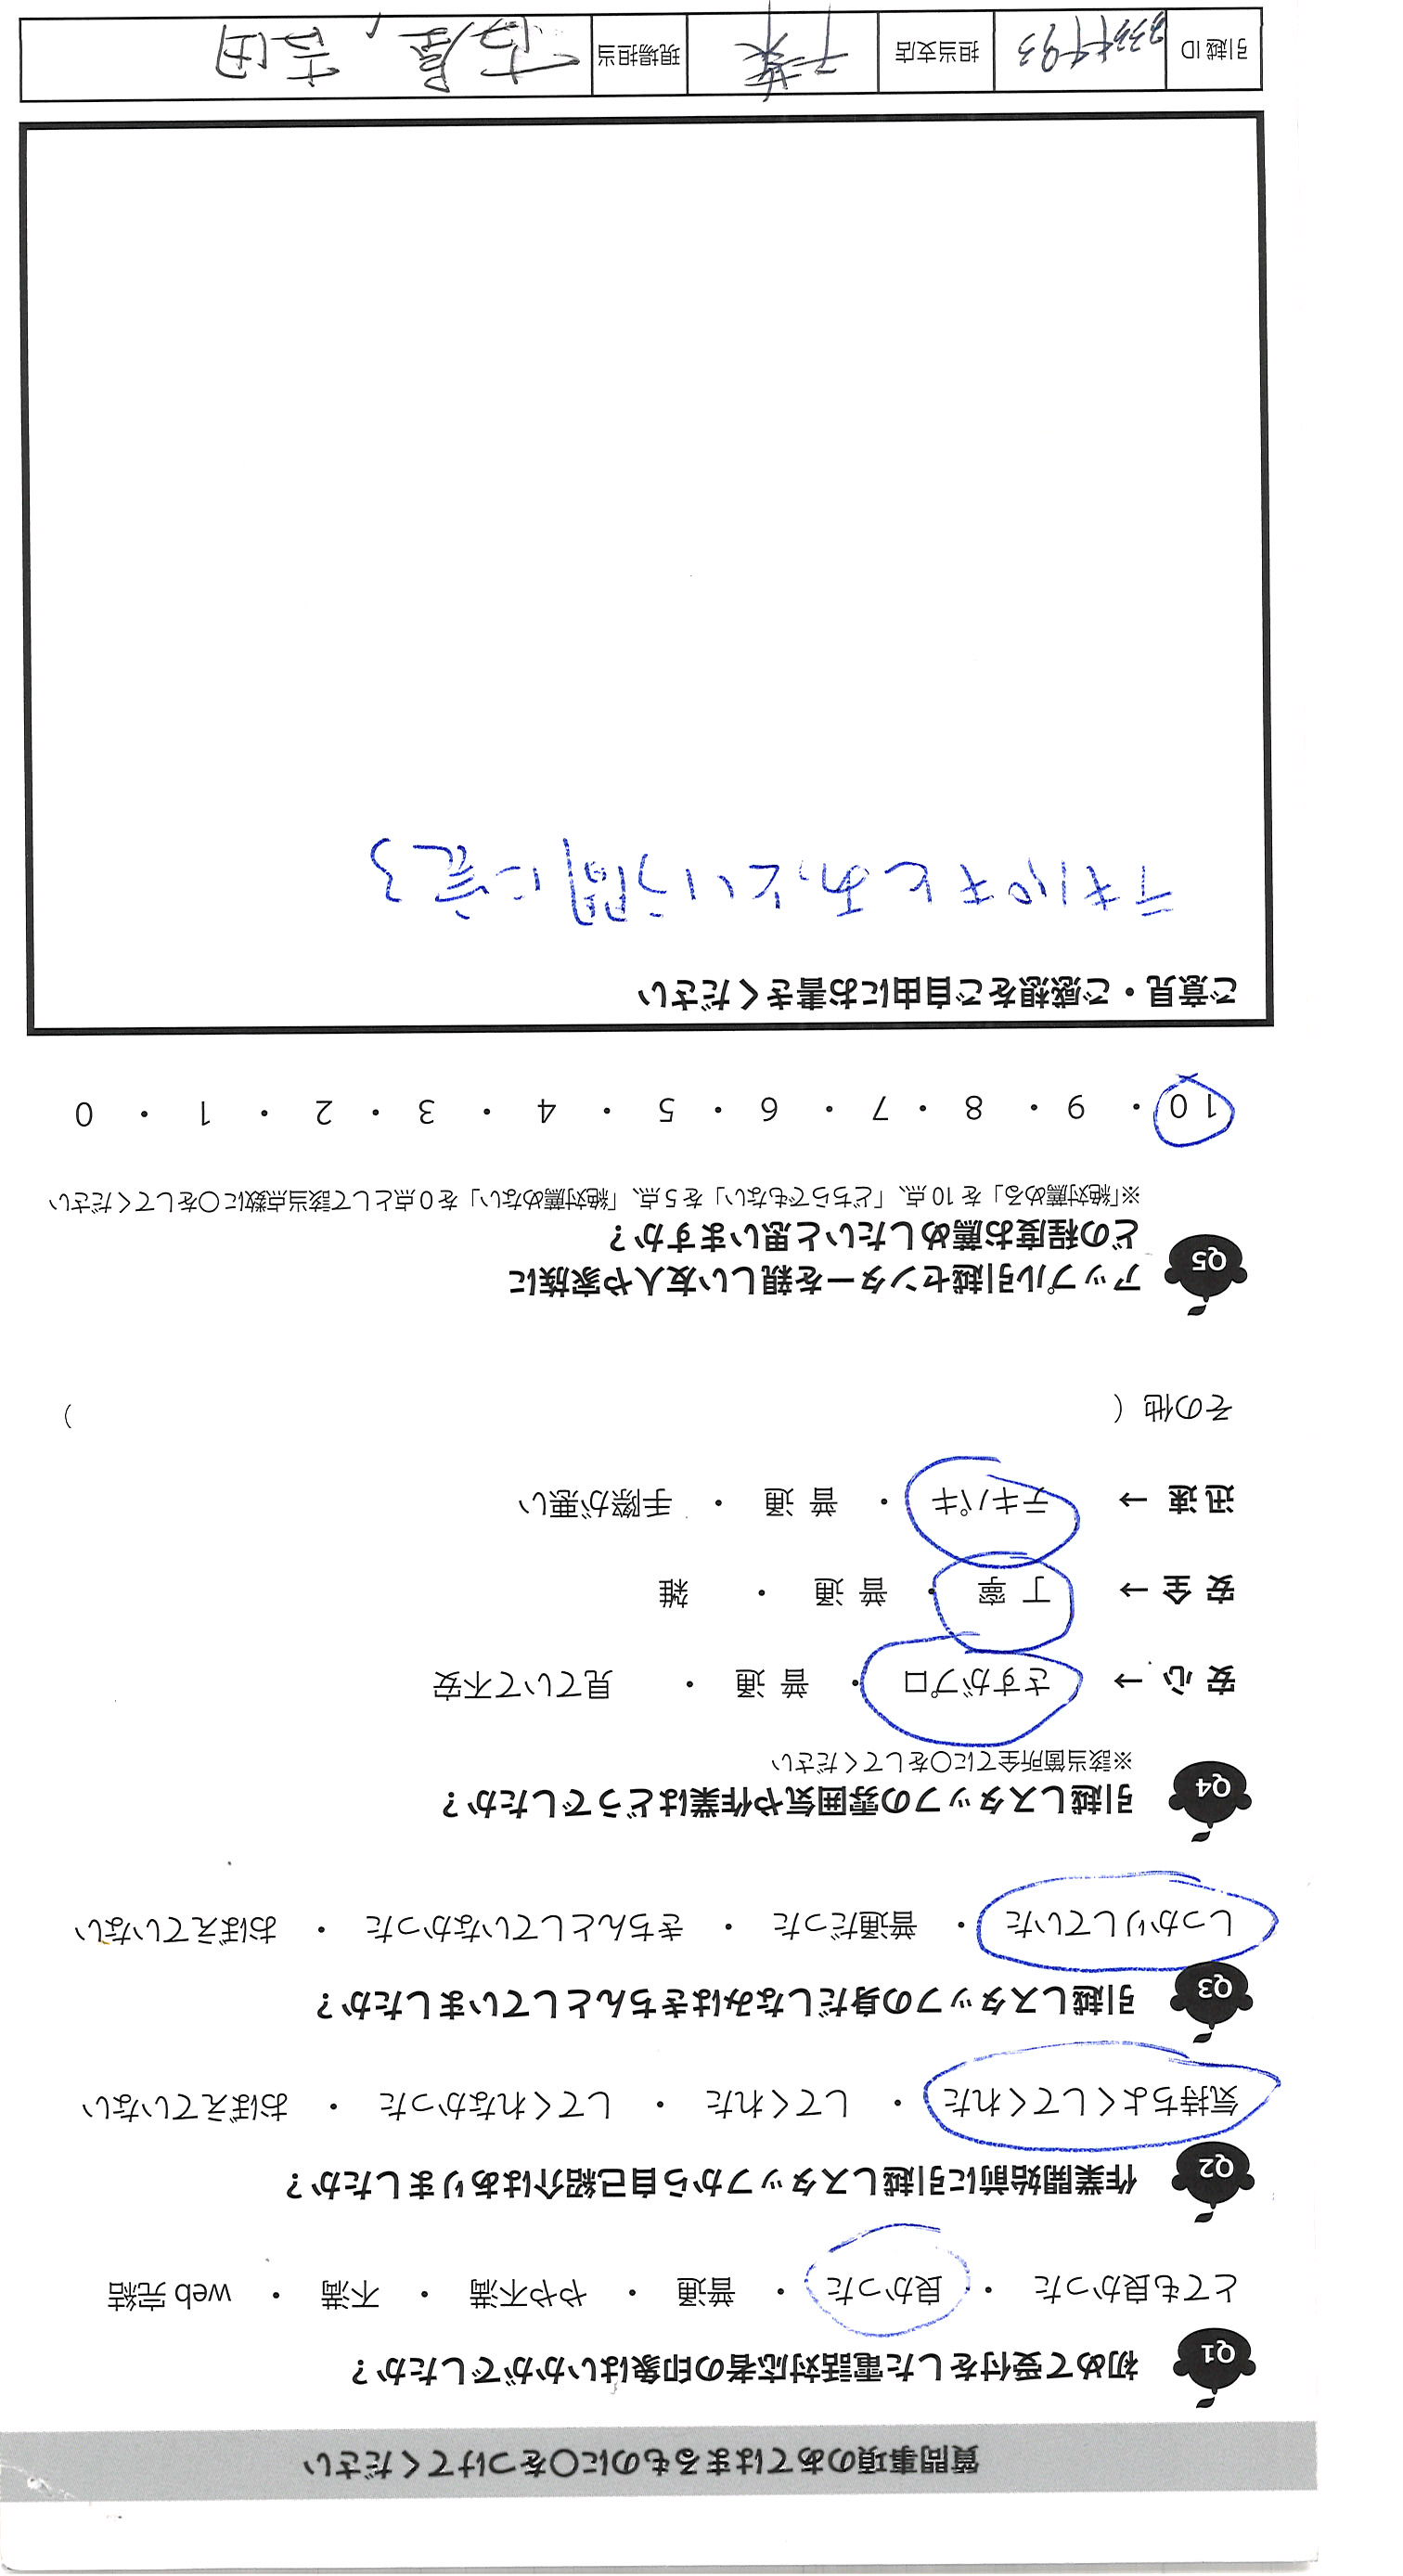 質問事項のあてはまるものに〇をつけてください
Q1 初めて受付をした電話対応者の印象はいかがでしたか？
とても良かった ・ 良かった ・ 普通 ・ やや不満 ・ 不満 ・ web 完結
Q2 作業開始前に引越しスタッフから自己紹介はありましたか？
気持ちよくしてくれた ・ してくれた ・ してくれなかった ・ おぼえていない
Q3 引越しスタッフの身だしなみはきちんとしていましたか？
しっかりしていた ・ 普通だった ・ きちんとしていなかった ・ おぼえていない
Q4 引越しスタッフの雰囲気や作業はどうでしたか？
※該当箇所全てに〇をしてください
安 心 → さすがプロ ・ 普 通 ・ 見ていて不安
安 全 → 丁 寧 ・ 普 通 ・ 雑
迅 速 → テキパキ ・ 普 通 ・ 手際が悪い
その他（ ）
Q5 アップル引越センターを親しい友人や家族に
どの程度お薦めしたいと思いますか？
※「絶対薦める」を 10 点、「どちらでもない」を 5 点、「絶対薦めない」を 0 点として該当点数に〇をしてください
10 ・ 9 ・ 8 ・ 7 ・ 6 ・ 5 ・ 4 ・ 3 ・ 2 ・ 1 ・ 0
ご意見・ご感想をご自由にお書きください
テキパキとあっという間に完了
引越 ID 担当支店 千葉 現場担当 吉田